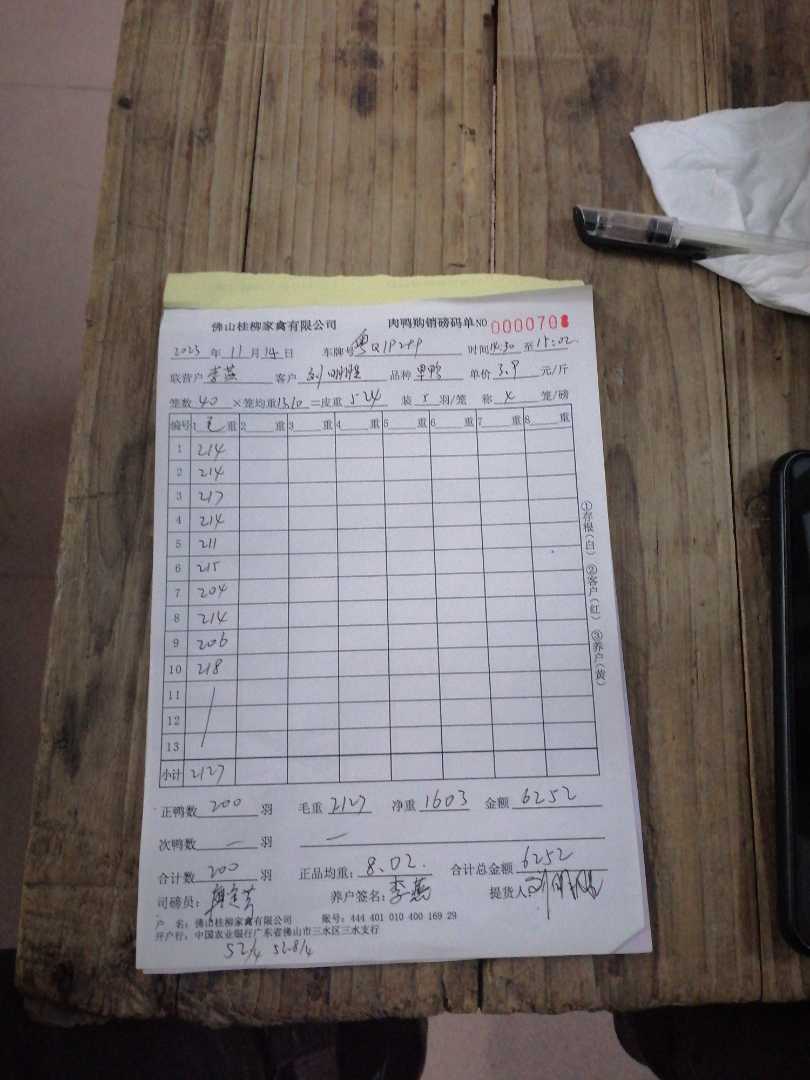 佛山桂柳家禽有限公司 肉鸭购销磅码单 NO 0000708
2023 年 11 月 14 日 车牌号 粤Q1P299 时间 14:30 至 15:02
联营户 李燕 客户 刘明胜 品种 单价 3.9 元/斤
笼数 40 ×笼均重 13.10 =皮重 524 装 5 羽/笼 称 4 笼/磅
编号 1 毛 重 2 重 3 重 4 重 5 重 6 重 7 重 8 重
1 214
2 214
3 217
4 214
5 211
6 215
7 204
8 214
9 206
10 218
11
12
13
小计 2127
正鸭数 200 羽 毛重 2127 净重 1603 金额 6252
次鸭数 — 羽 —
合计数 200 羽 正品均重: 8.02. 合计总金额 6252
司磅员: 养户签名: 李燕 提货人: 刘明胜
户 名: 佛山桂柳家禽有限公司 账号: 444 401 010 400 169 29
开户行: 中国农业银行广东省佛山市三水区三水支行
52/4 52.8/4
①存根(白) ②客户(红) ③养户(黄)